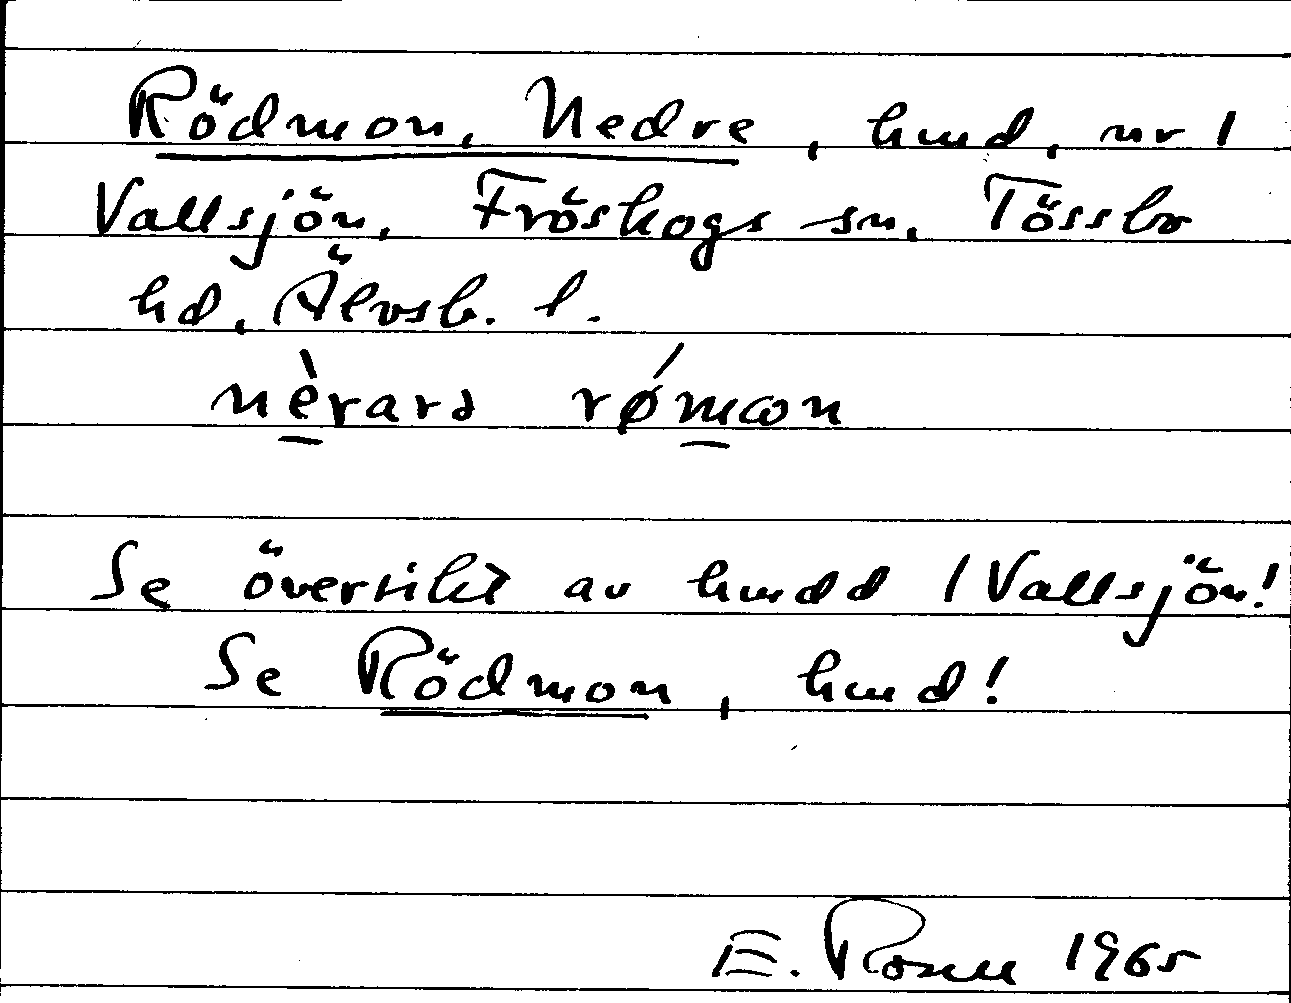 Rödmon, Nedre, hmd, nr 1
Vallsjön, Fröskogs sn, Tössbo
hd, Älvsb. l.
nèrarə rǿmɷn
Se översikt av hmdd / Vallsjön!
Se Rödmon, hmd!
E. Rosell 1965